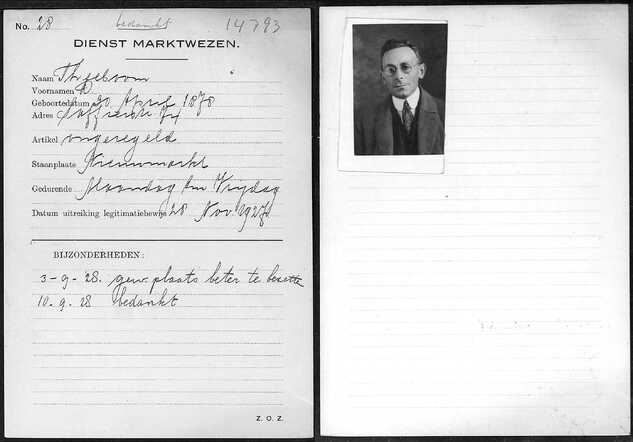 No. 28 bedankt 14793
DIENST MARKTWEZEN.
Naam Theeboom
Voornamen
Geboortedatum 20 April 1878
Adres 74
Artikel ongeregeld
Staanplaats Nieuwmarkt
Gedurende Maandag t/m Vrijdag
Datum uitreiking legitimatiebewijs 28 Nov. 1927
BIJZONDERHEDEN:
3-9-28. gew. plaats beter te bezetten
10.9.28 bedankt
Z. O. Z.